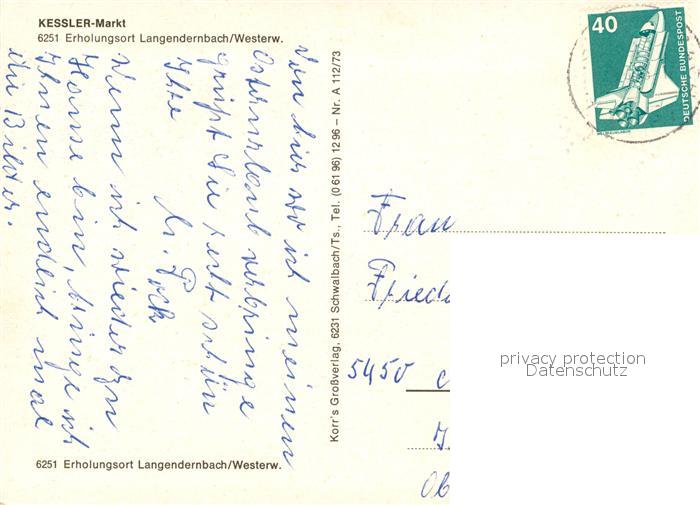 KESSLER-Markt
6251 Erholungsort Langendernbach/Westerw.
Von hier wo ich meinen
Osterurlaub verbringe
grüßt Sie recht schön
Ihre
Wenn ich wieder zu
Hause bin, bringe ich
Ihnen endlich mal
die Bilder.
6251 Erholungsort Langendernbach/Westerw.
Korr's Großverlag, 6231 Schwalbach/Ts., Tel. (0 61 96) 12 96 – Nr. A 112/73
40
DEUTSCHE BUNDESPOST
Frau
5450
privacy protection
Datenschutz